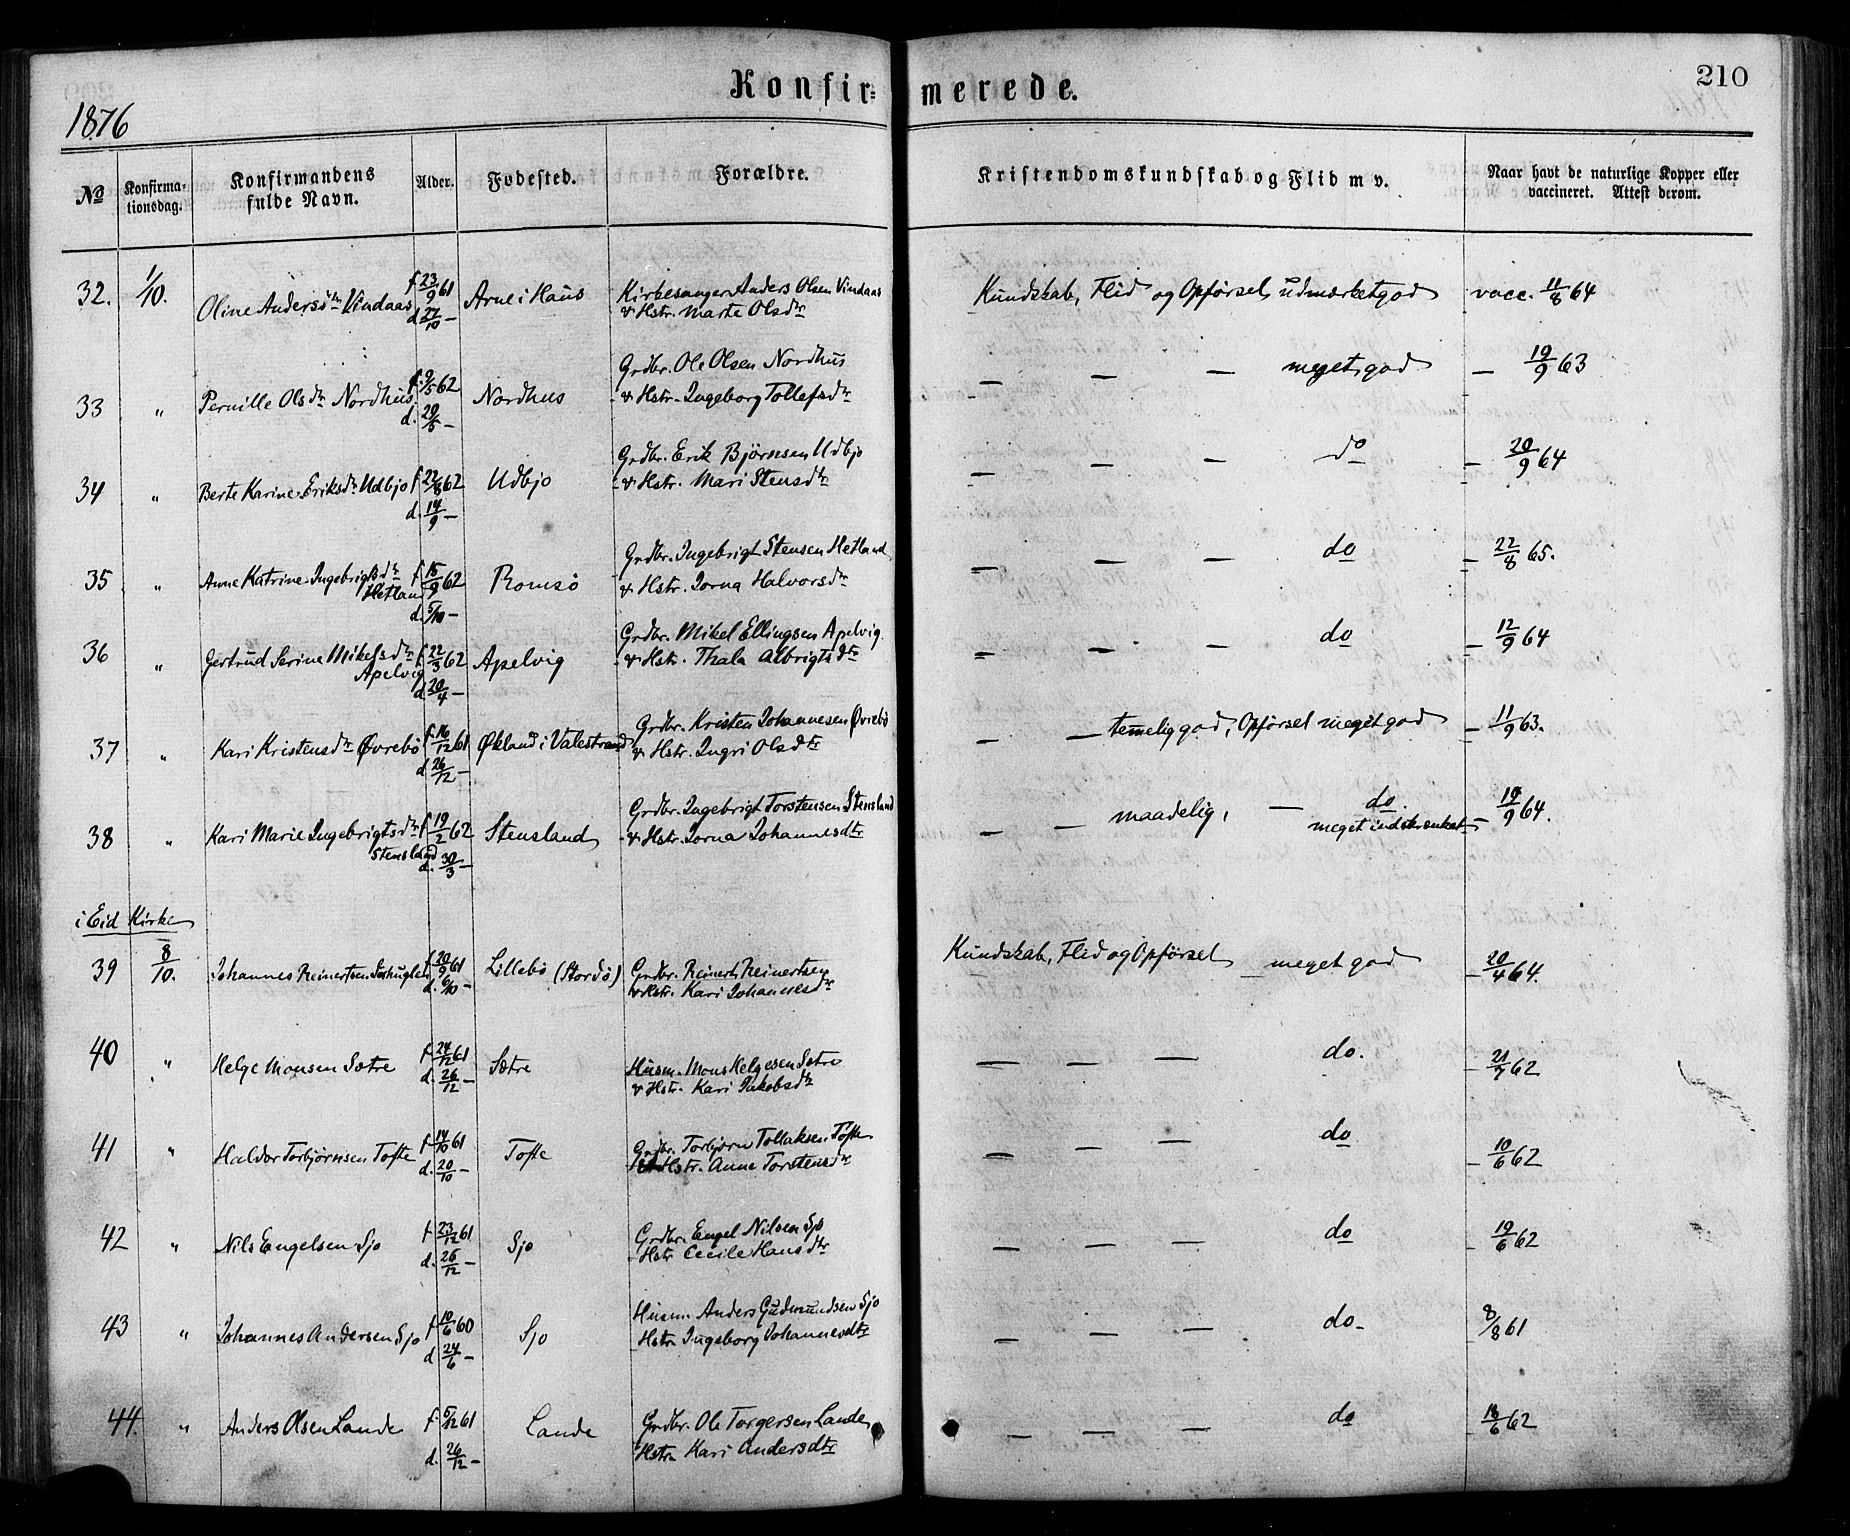 Konfir= merede.
210
1876
No
Konfirma-
tionsdag.
Konfirmandens
fulde Navn.
Alder.
Fødested.
Forældre.
Kristendomskundskab og Flid m v.
Naar havt de naturlige Kopper eller
vaccineret. Attest derom.
32. 1/10. Oline Andersdtr Vindaas f 23/9 61 d 27/10 — Arne i Haus
Kirkesanger Anders Olsen Vindaas
& Hstr. Marte Olsdtr
Kundskab, Flid og Opførsel udmærket god vacc. 11/8 64
33 " Pernille Olsdtr Nordhus f. 9/5 62 d. 29/5 — Nordhus
Grdbr. Ole Olsen Nordhus
& Hstr. Ingeborg Tollefsdtr
— — — meget god — 19/9 63
34 " Berte Karine Eriksdtr Udbjo f 22/8 62 d. 14/9 — Udbjo
Grdbr. Erik Bjørnsen Udbjo
& Hstr. Mari Stensdtr
— — — do — 20/9 64
35 " Anne Katrine Ingebrigtsdtr
Hetland f 15/9 62 d. 5/10 — Romsö
Grdbr. Ingebrigt Stensen Hetland
& Hstr. Jorna Halvorsdtr
— — — do — 22/8 65.
36 " Gertrud Serine Mikelsdtr
Apelvig f 22/3 62 d 20/4 — Apelvig
Grdbr. Mikel Ellingsen Apelvig.
& Hstr. Thala Albrigtsdtr
— — — do — 12/9 64
37 " Kari Kristensdtr Øvrebö f. 16/12 61 d 26/12 — Økland i Valestrand
Grdbr. Kristen Johannesen Øvrebö
& Hstr. Ingri Olsdtr
— — temelig god, Opførsel meget god — 11/9 63.
38 " Kari Marie Ingebrigtsdtr
Stensland f 19/2 62 d. 30/3 — Stensland
Grdbr. Ingebrigt Torstensen Stensland
& Hstr. Jorna Johannesdtr
— — maadelig, — do.
meget indskrænket — 19/9 64.
i Eid Kirke
39 8/10. Johannes Reinertsen f 20/9 61 d. 6/10 — Lillebö (Stordö)
Grdbr. Reinert Reinertsen
& Hstr. Kari Johannesdtr
Kundskab, Flid og Opførsel — meget god — 20/4 64.
40 " Helge Monsen Sætre f. 24/12 61 d. 26/12 — Sætre
Husm. Mons Helgesen Sætre
& Hstr. Kari Jakobsdtr
— — — do. — 21/7 62
41 " Haldor Torbjørnsen Tofte f. 14/10 61 d. 20/10 — Tofte
Grdbr. Torbjørn Tollaksen Tofte
Hstr. Anne Torstensdtr
— — — do — 10/6 62
42 " Nils Engelsen Sjo f 23/12 61 d. 26/12 — Sjo
Grdbr. Engel Nilsen Sjo
Hstr Cecile Hansdtr
— — — do — 19/6 62
43 " Johannes Andersen Sjo f 10/6 60 d 24/6 — Sjo
Husm. Anders Gudmundsen Sjo
Hstr. Ingeborg Johannesdtr
— — — do — 8/8 61
44. " Anders Olsen Lande f. 5/12 61 d. 26/12 — Lande
Grdbr. Ole Torgersen Lande
Hstr. Kari Andersdtr
— — — do 18/6 62